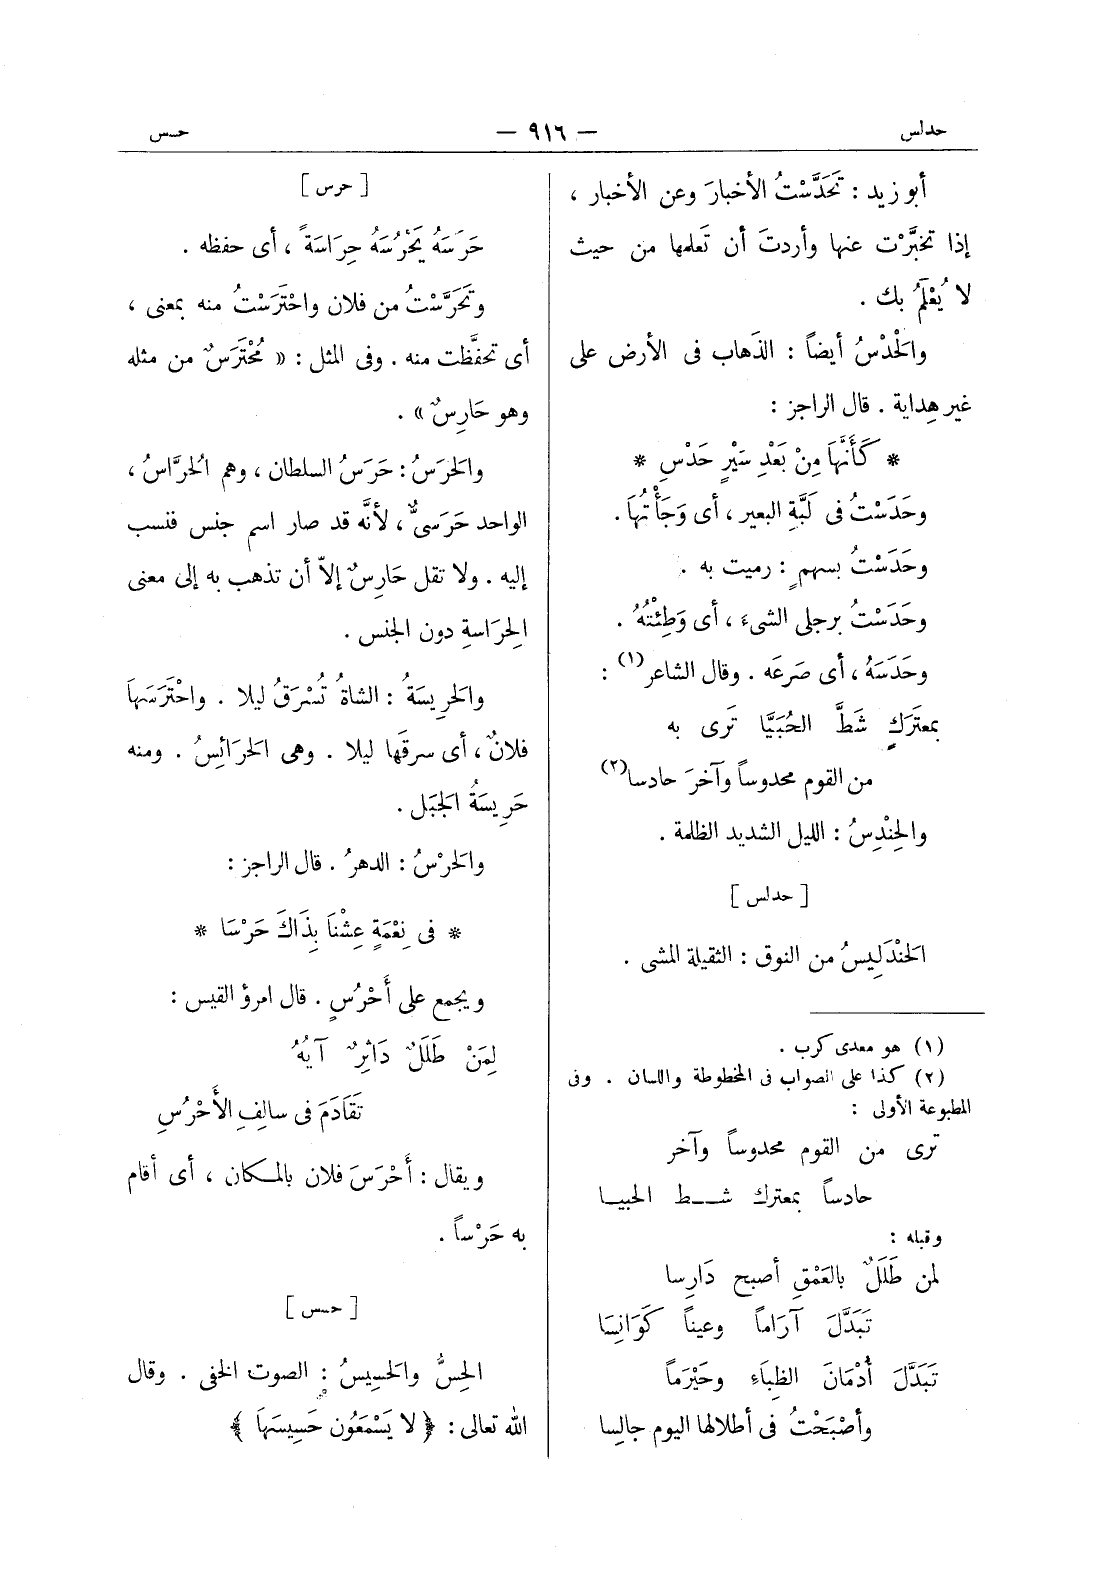 حدلس
— ٩١٦ —
حسس
أبو زيد : تَحَدَّسْتُ الأخبارَ وعن الأخبار ،
إذا تخبَّرْت عنها وأردتَ أن تَعلمها من حيث
لا يُعْلَمُ بك .
والحَدْسُ أيضاً : الذَهاب فى الأرض على
غير هِداية . قال الراجز :
* كَأَنَّهَا مِنْ بَعْدِ سَيْرٍ حَدْسِ *
وحَدَسْتُ فى لَبَّةِ البعير ، أى وَجَأْتُهَا .
وحَدَسْتُ بسهمٍ : رميت به .
وحَدَسْتُ برجلى الشىءَ ، أى وَطِئْتُهُ .
وحَدَسَهُ ، أى صَرعَه . وقال الشاعر (١) :
بمعتَرَكٍ شَطَّ الحُبَيَّا تَرى به
من القوم محدوساً وآخرَ حادسا (٢)
والحِنْدِسُ : الليل الشديد الظلمة .
[ حدلس ]
الحَنْدَلِيسُ من النوق : الثقيلة المشى .
(١) هو معدى كرب .
(٢) كذا على الصواب فى المخطوطة واللسان . وفى
المطبوعة الأولى :
ترى من القوم محدوساً وآخر
حادساً بمعترك شــط الحبيـا
وقبله :
لمن طَلَلٌ بالعَمْقِ أصبح دَارِسا
تَبَدَّلَ آرَاماً وعيناً كَوَانِسَا
تَبَدَّلَ أُدْمَانَ الظِبَاءِ وحَيْرَماً
وأصْبَحْتُ فى أطلالها اليوم جالِسا
[ حرس ]
حَرَسَهُ يَحْرُسُهُ حِرَاسَةً ، أى حفظه .
وتَحَرَّسْتُ من فلان واحْتَرَسْتُ منه بمعنى ،
أى تحفَّظت منه . وفى المثل : « مُحْتَرَسٌ من مثله
وهو حَارِسٌ » .
والحَرَسُ : حَرَسُ السلطان ، وهم الحُرَّاسُ ،
الواحد حَرَسىٌّ ، لأنَّه قد صار اسم جنس فنسب
إليه . ولا تقل حَارِسٌ إلاّ أن تذهب به إلى معنى
الحِرَاسةِ دون الجنس .
والحَرِيسَةُ : الشاةُ تُسْرَقُ ليلا . واحْتَرَسَهَا
فلانٌ ، أى سرقَها ليلا . وهى الحَرَائِسُ . ومنه
حَرِيسَةُ الجَبَل .
والحَرْسُ : الدهرُ . قال الراجز :
* فى نِعْمَةٍ عِشْنَا بِذَاكَ حَرْسَا *
ويجمع على أَحْرُسٍ . قال امرؤ القيس :
لِمَنْ طَلَلٌ دَاثِرٌ آيُهُ
تَقَادَمَ فى سالِفِ الأَحْرُسِ
ويقال : أَحْرَسَ فلان بالمـكان ، أى أقام
به حَرْساً .
[ حسس ]
الحِسُّ والحَسِيسُ : الصوت الخفى . وقال
الله تعالى : ﴿ لا يَسْمَعُون حَسِيسَهَا ﴾